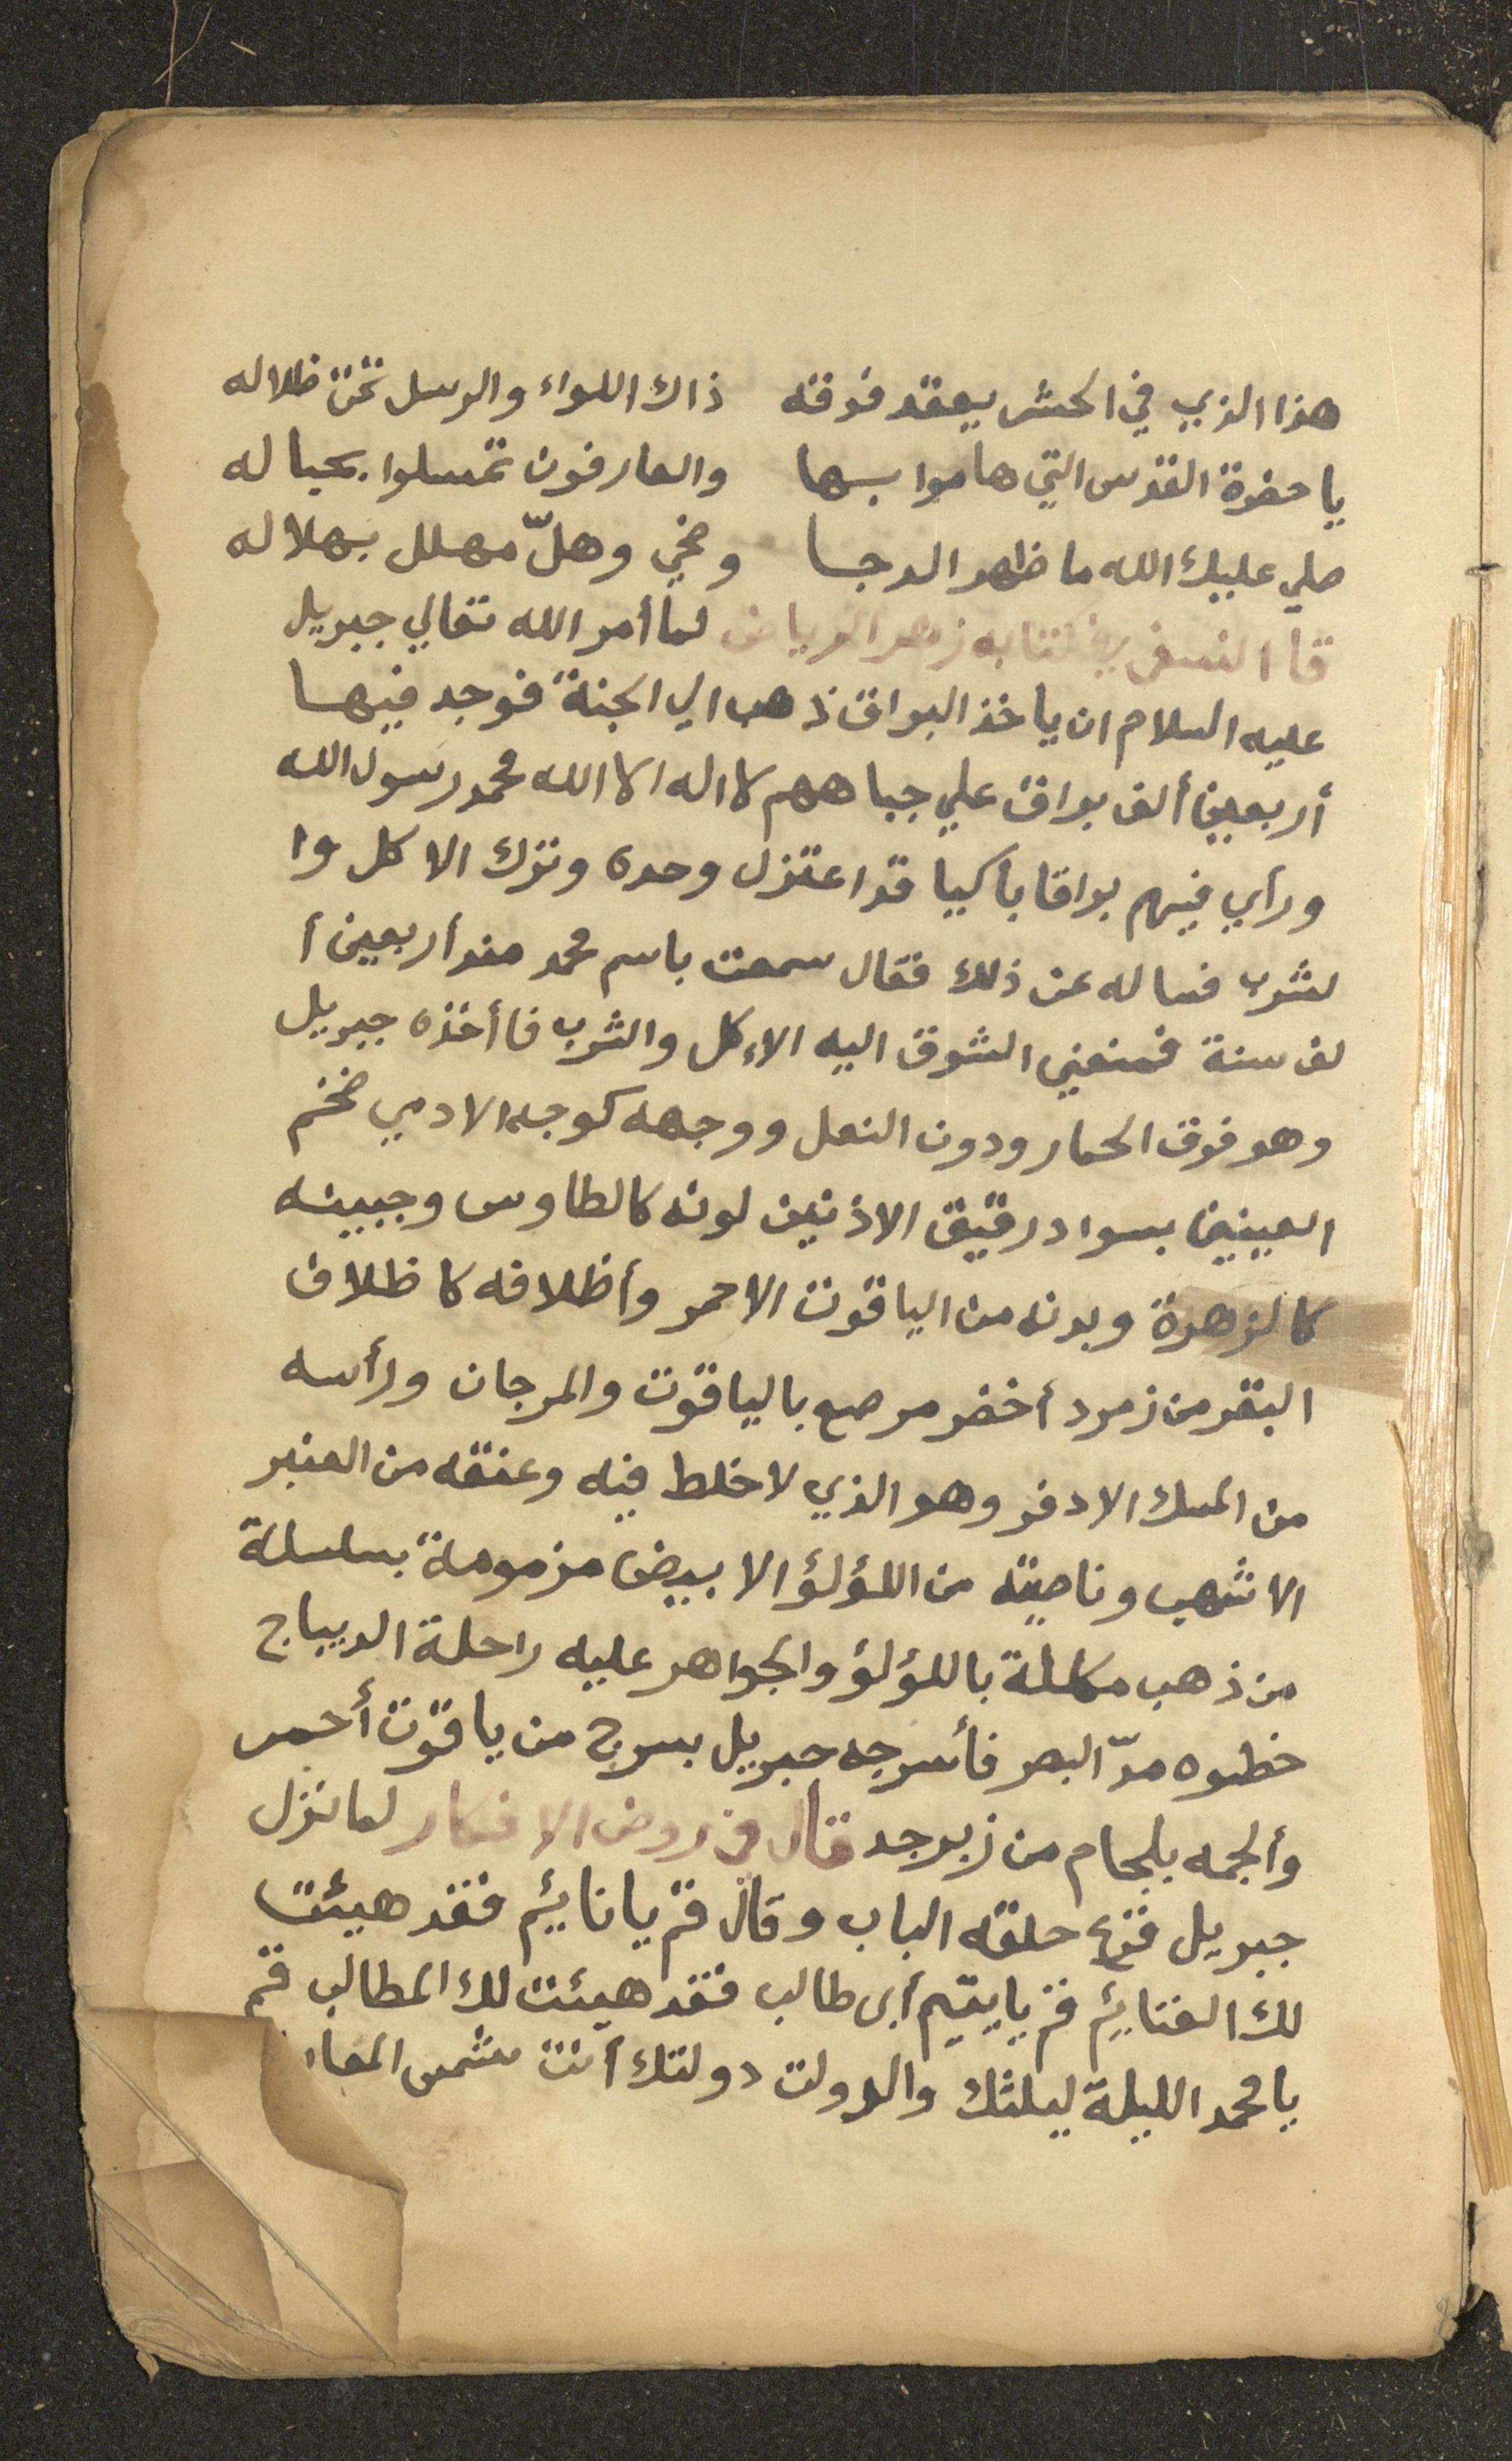 هذا الذي في الحشر يعقد فوقه ذاك اللواء والرسل تحت ظلاله
يا حضرة القدس التي هاموا بسها والعارفون تمسلوا بحباله
صلي عليك الله ما ظهر الدجا وضحي وهلّ مهلل بهلاله
قال النسفي في كتابه زهر الرياض لما أمر الله تعالي جبريل
عليه السلام ان ياخذ البراق ذهب الي الجنة فوجد فيها
أربعين ألف براق علي جباههم لا اله الا الله محمد رسول الله
ورأي فيهم براقا باكيا قد اعتزل وحده وترك الاكل وا
لشرب فساله عن ذلك فقال سمعت باسم محمد منذ أربعين أ
لف سنة فمنعني الشوق اليه الاكل والشرب فاأخذه جبريل
وهو فوق الحمار ودون البغل ووجهه كوجه الادمي ضخم
العينين بسواد رقيق الاذنين لونه كالطاوس وجبينه
كالزهرة وبدنه من الياقوت الاحمر وأظلافه كاظلاف
البقر من زمرد أخضر مرصع بالياقوت والمرجان ورأسه
من المسك الادفر وهو الذي لا خلط فيه وعنقه من العنبر
الاشهب وناصيته من اللؤلؤ الابيض مزمومة بسلسلة
من ذهب مكللة باللؤلؤ والجواهر عليه راحلة الديباج
خطوه مدّ البصر فأسرجه جبريل بسرج من ياقوت أحمر
وألجمه بلجام من زبرجد قال في روض الافكار لما نزل
جبريل قرع حلقه الباب وقال قم يا نايئم فقد هيئت
لك الغنايئم قم يا يتيم أبى طالب فقد هيئت لك المطالب قم
يا محمد الليلة ليلتك والدولت دولتك أنت شمس